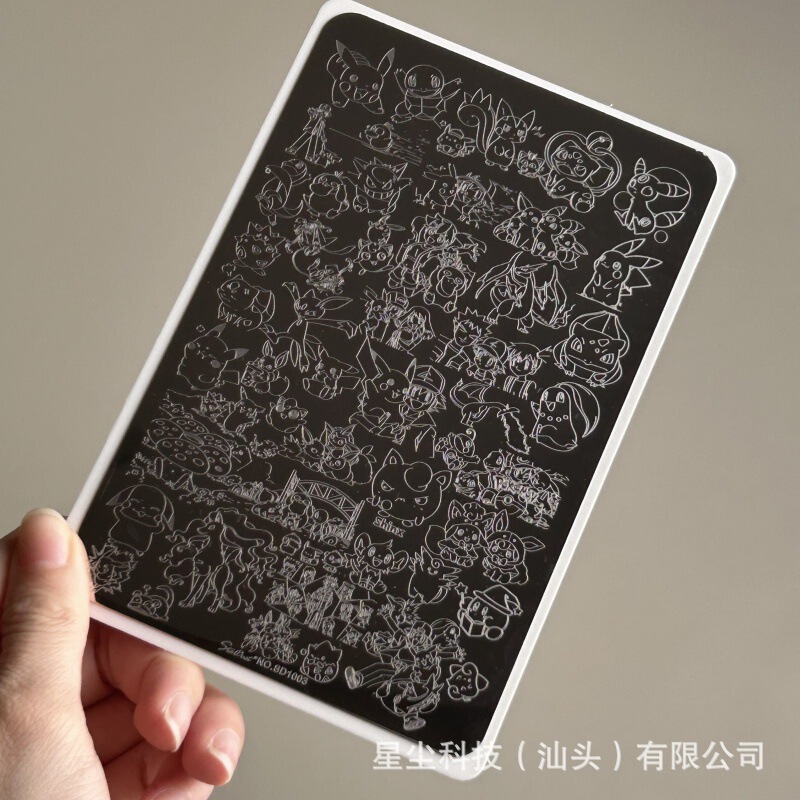 Shinx
NO.BD1003
星尘科技（汕头）有限公司